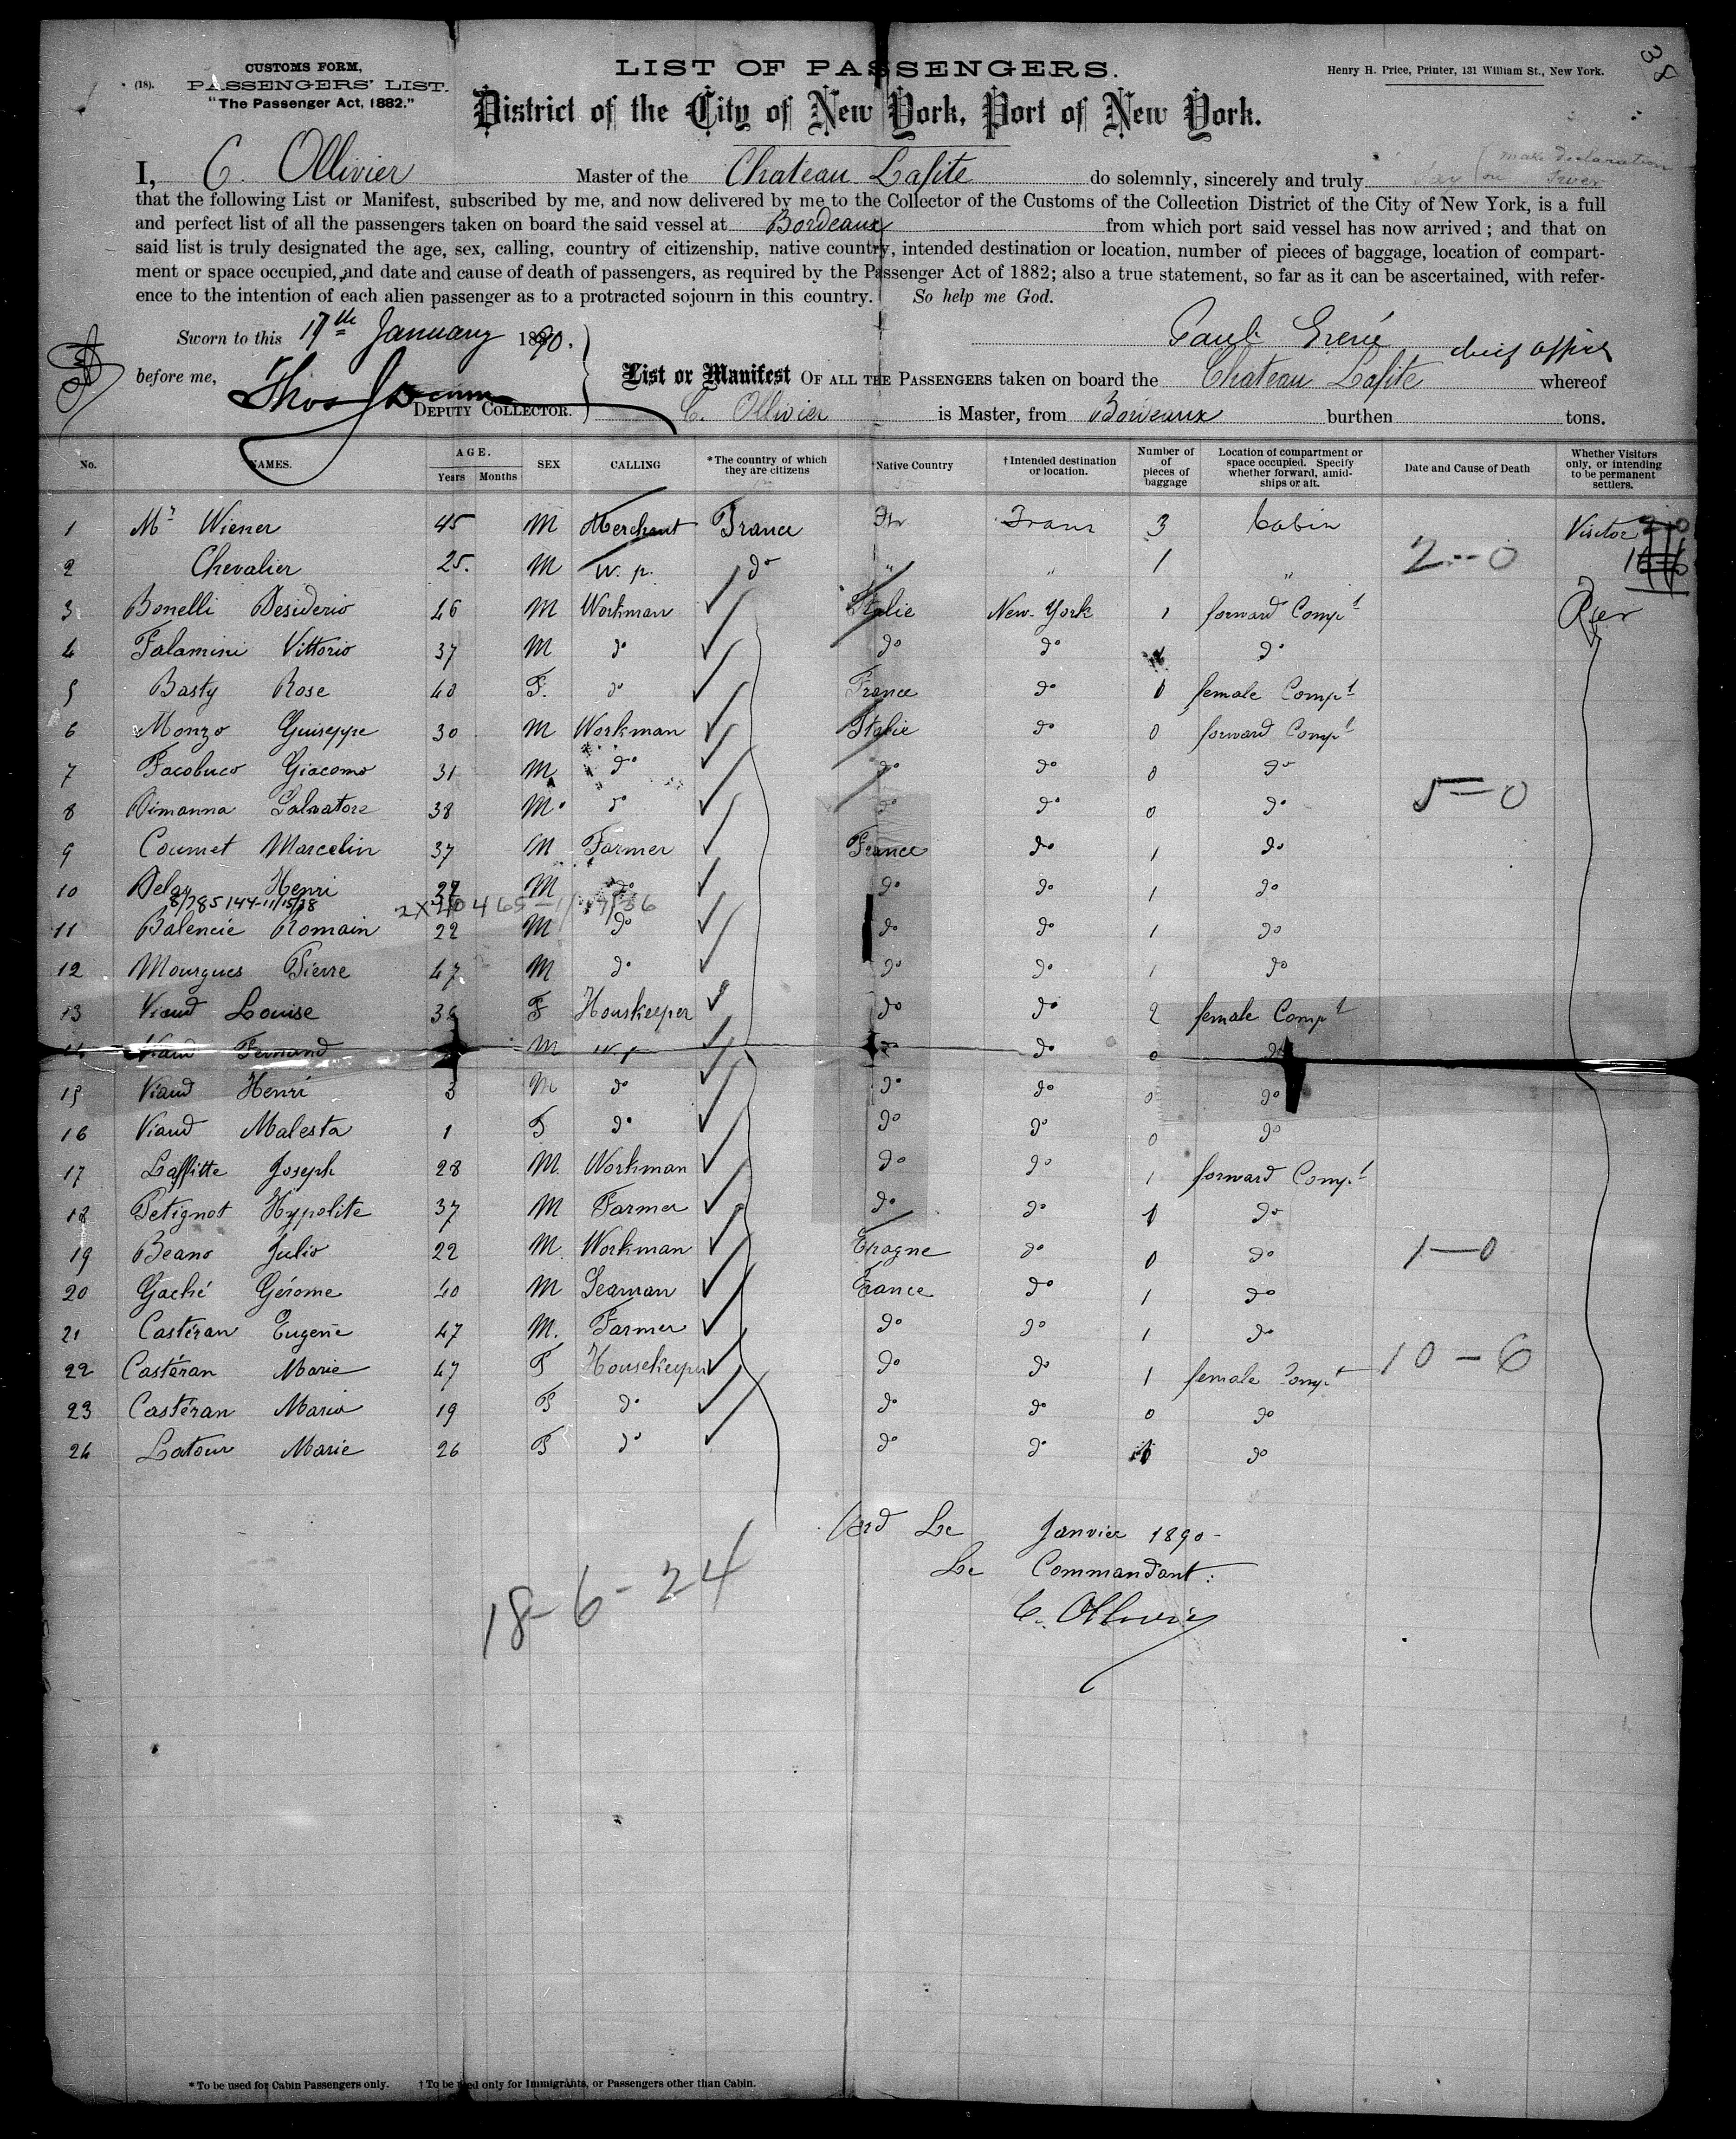 38
CUSTOMS FORM,
(18). PASSENGERS' LIST.
"The Passenger Act, 1882."
LIST OF PASSENGERS.
Henry H. Price, Printer, 131 William St., New York.
District of the City of New York, Port of New York.
make declaration
I, C. Ollivier Master of the Chateau Lafite do solemnly, sincerely and truly
that the following List or Manifest, subscribed by me, and now delivered by me to the Collector of the Customs of the Collection District of the City of New York, is a full
and perfect list of all the passengers taken on board the said vessel at Bordeaux from which port said vessel has now arrived; and that on
said list is truly designated the age, sex, calling, country of citizenship, native country, intended destination or location, number of pieces of baggage, location of compart-
ment or space occupied, and date and cause of death of passengers, as required by the Passenger Act of 1882; also a true statement, so far as it can be ascertained, with refer-
ence to the intention of each alien passenger as to a protracted sojourn in this country. So help me God.
Sworn to this 17th January 1890.
chief officer
before me, Thos
DEPUTY COLLECTOR.
List or Manifest OF ALL THE PASSENGERS taken on board the Chateau Lafite whereof
C. Ollivier is Master, from Bordeaux burthen tons.
No. NAMES. AGE. Years Months SEX CALLING *The country of which they are citizens †Native Country †Intended destination or location. Number of of pieces of baggage Location of compartment or space occupied. Specify whether forward, amid-ships or aft. Date and Cause of Death Whether Visitors only, or intending to be permanent settlers.
1 Mr Wiener 45 M Merchant France Frans 3 Cabin Visitor
2 Chevalier 25. M W. p. do " " 1 " 2--0
3 Bonelli Desiderio 46 M Workman Italie New-York 1 forward Compt
4 Falamini Vittorio 37 M do do do do
5 Basty Rose 40 F. do France do 0 female Compt
6 Monzo Guiseppe 30 M Workman Italie do 0 forward Compt
7 Jacobuco Giacomo 31 M do do do 0 do
8 Dimanna Salvatore 38 M do do do 0 do 5=0
9 Coumet Marcelin 37 M Farmer France do 1 do
10 Delas Henri 27 M do do do 1 do
11 Balencie Romain 22 M do do do 1 do
12 Mourgues Pierre 47 M do do do 1 do
13 Viaud Louise 36 F Houskeeper do do 2 female Compt
14 Viaud Fernand M W. p do do 0 do
15 Viaud Henri 3 M do do do 0 do
16 Viaud Malesta 1 F do do do 0 do
17 Laffitte Joseph 28 M. Workman do do 1 forward Compt
18 Petignot Hypolite 37 M Farmer do do 1 do
19 Beano Julio 22 M. Workman Epagne do 0 do 1—0
20 Gaché Gérome 40 M Seaman France do 1 do
21 Castéran Eugene 47 M. Farmer do do 1 do
22 Castéran Marie 47 F Housekeeper do do 1 female Compt 10-6
23 Castéran Maria 19 F do do do 0 do
24 Latour Marie 26 F do do do do
Le Janvier 1890-
Le Commandant:
C. Ollivier
18-6-24
*To be used for Cabin Passengers only. †To be used only for Immigrants, or Passengers other than Cabin.